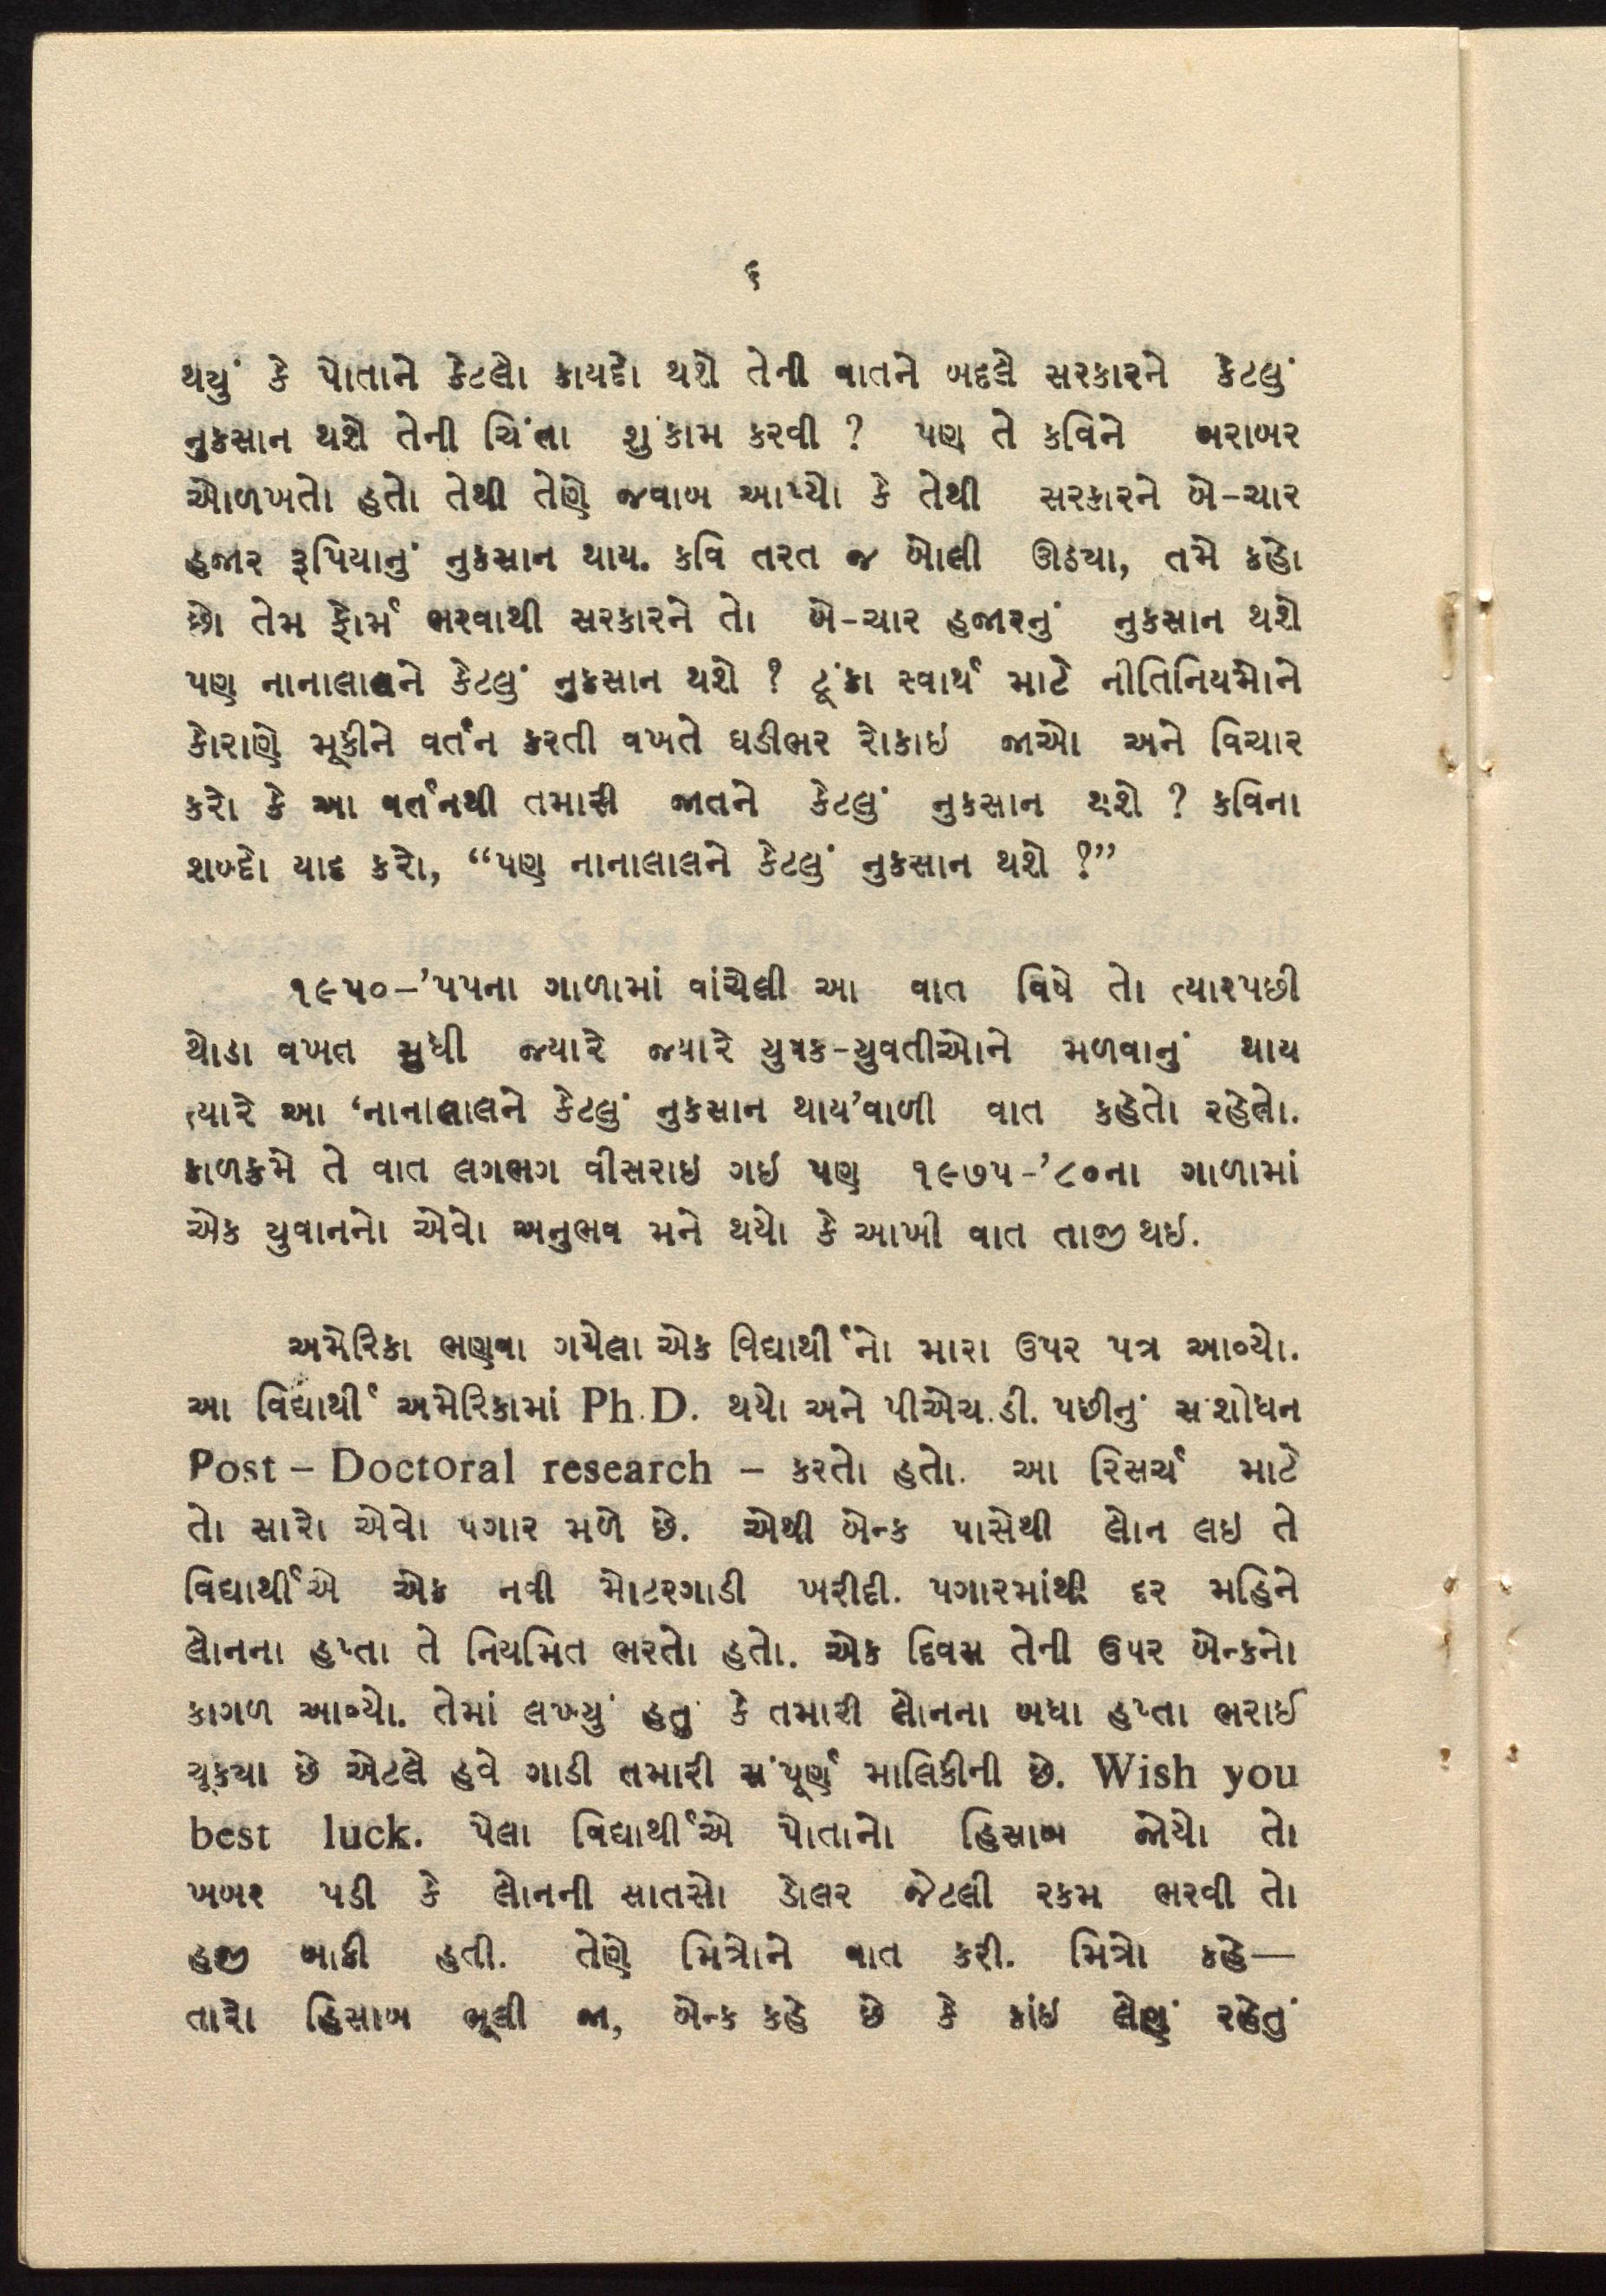 ૬
થયું કે પોતાને કેટલો ફાયદો થશે તેની વાતને બદલે સરકારને કેટલું
નુકસાન થશે તેની ચિંતા શુંકામ કરવી ? પણ તે કવિને બરાબર
ઓળખતો હતો તેથી તેણે જવાબ આપ્યો કે તેથી સરકારને બે-ચાર
હજાર રૂપિયાનું નુકસાન થાય. કવિ તરત જ બોલી ઊઠયા, તમે કહો
છો તેમ ફોર્મ ભરવાથી સરકારને તો બે-ચાર હજારનું નુકસાન થશે
પણ નાનાલાલને કેટલું નુકસાન થશે ? ટૂંકા સ્વાર્થ માટે નીતિનિયમોને
કોરાણે મૂકીને વર્તન કરતી વખતે ઘડીભર રોકાઇ જાઓ અને વિચાર
કરો કે આ વર્તનથી તમારી જાતને કેટલું નુકસાન થશે ? કવિના
શબ્દો યાદ કરો, “પણ નાનાલાલને કેટલું નુકસાન થશે ?”
૧૯૫૦–’૫૫ના ગાળામાં વાંચેલી આ વાત વિષે તો ત્યારપછી
થોડા વખત સુધી જ્યારે જ્યારે યુવક-યુવતીઓને મળવાનું થાય
ત્યારે આ ‘નાનાલાલને કેટલું નુકસાન થાય’વાળી વાત કહેતો રહેતો.
કાળક્રમે તે વાત લગભગ વીસરાઇ ગઇ પણ ૧૯૭૫-’૮૦ના ગાળામાં
એક યુવાનનો એવો અનુભવ મને થયો કે આખી વાત તાજી થઇ.
અમેરિકા ભણવા ગયેલા એક વિદ્યાર્થીનો મારા ઉપર પત્ર આવ્યો.
આ વિદ્યાર્થી અમેરિકામાં Ph.D. થયો અને પીએચ.ડી. પછીનું સંશોધન
Post – Doctoral research – કરતો હતો. આ રિસર્ચ માટે
તો સારો એવો પગાર મળે છે. એથી બેન્ક પાસેથી લોન લઇ તે
વિદ્યાર્થીએ એક નવી મોટરગાડી ખરીદી. પગારમાંથી દર મહિને
લોનના હપ્તા તે નિયમિત ભરતો હતો. એક દિવસ તેની ઉપર બેન્કનો
કાગળ આવ્યો. તેમાં લખ્યું હતું કે તમારી લોનના બધા હપ્તા ભરાઈ
ચૂકયા છે એટલે હવે ગાડી તમારી સંપૂર્ણ માલિકીની છે. Wish you
best luck. પેલા વિદ્યાર્થીએ પોતાનો હિસાબ જોયો તો
ખબર પડી કે લોનની સાતસો ડોલર જેટલી રકમ ભરવી તો
હજી બાકી હતી. તેણે મિત્રોને વાત કરી. મિત્રો કહે—
તારો હિસાબ ભૂલી જા, બેન્ક કહે છે કે કાંઇ લેણું રહેતું